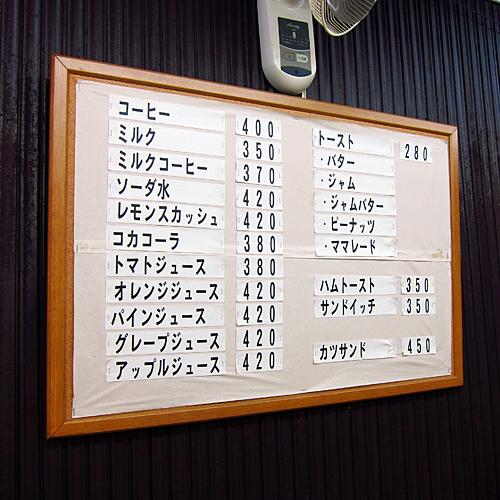 コーヒー 400
ミルク 350
ミルクコーヒー 370
ソーダ水 420
レモンスカッシュ 420
コカコーラ 380
トマトジュース 380
オレンジジュース 420
パインジュース 420
グレープジュース 420
アップルジュース 420
トースト 280
・バター
・ジャム
・ジャムバター
・ピーナッツ
・ママレード
ハムトースト 350
サンドイッチ 350
カツサンド 450